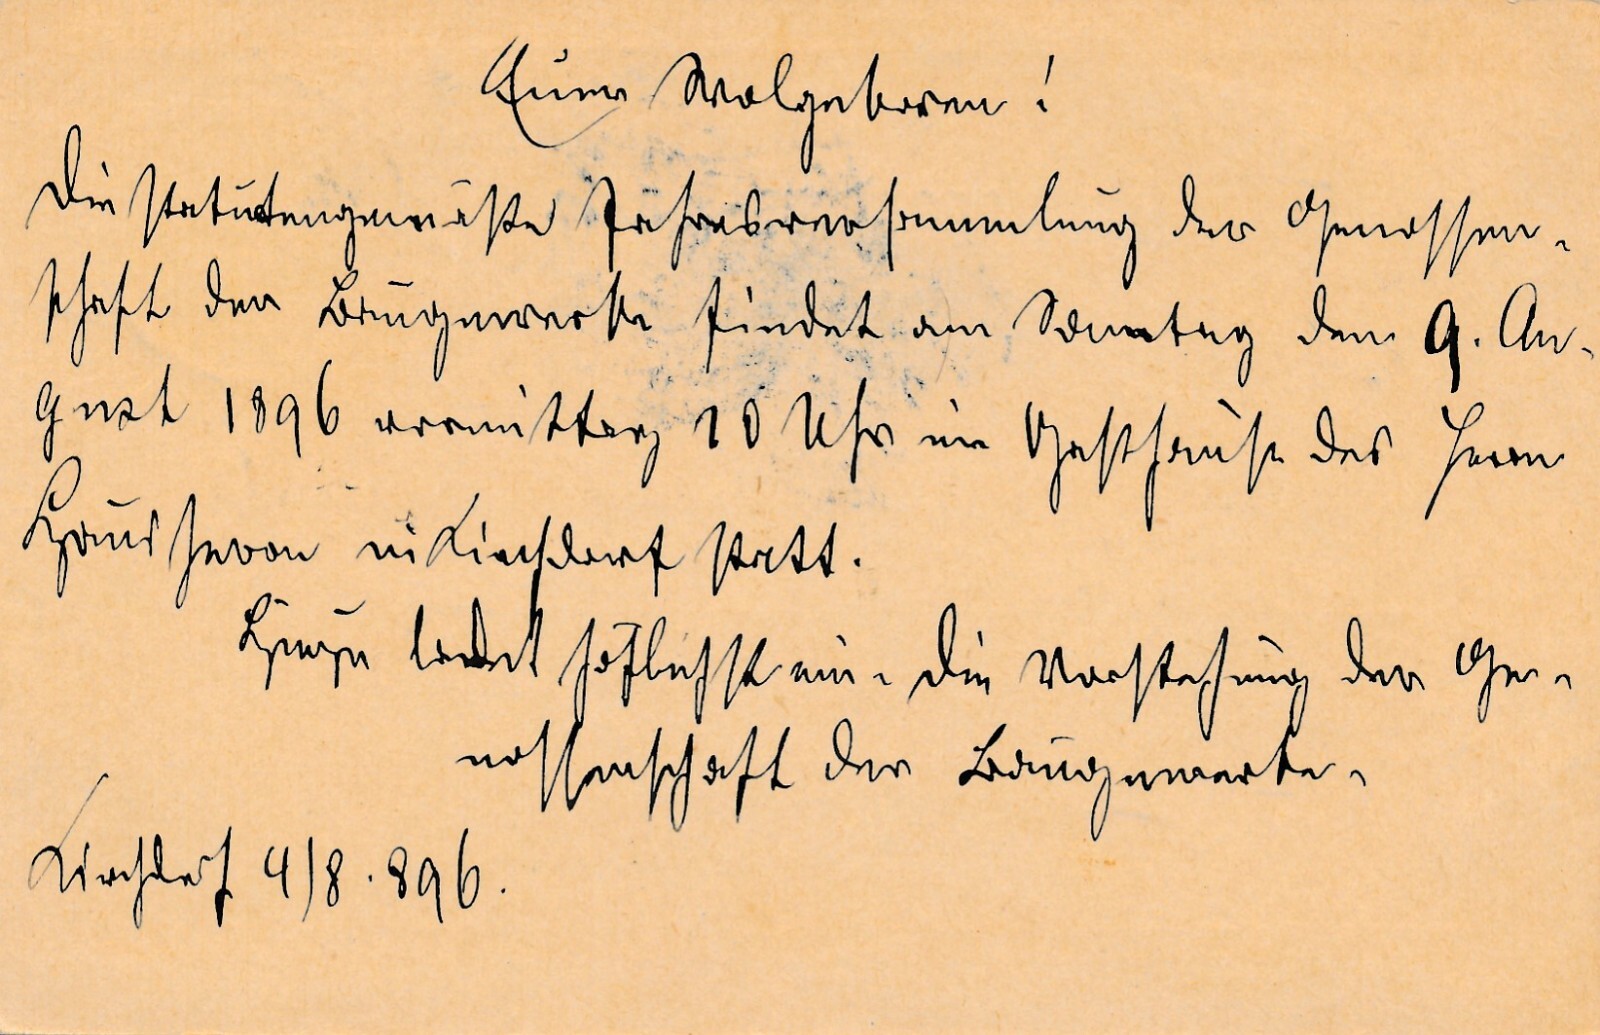 Euer Wolgeboren!
Die statutengemäße Jahresversammlung der Genossen-
schaft der Baugewerbe findet am Sonntag den 9. Au-
gust 1896 vormittag 10 Uhr im Gasthause des Herrn
in Kirchdorf statt.
Hiezu ladet höflichst ein. Die Vorstehung der Ge-
nossenschaft der Baugewerbe.
Kirchdorf 4/8. 896.